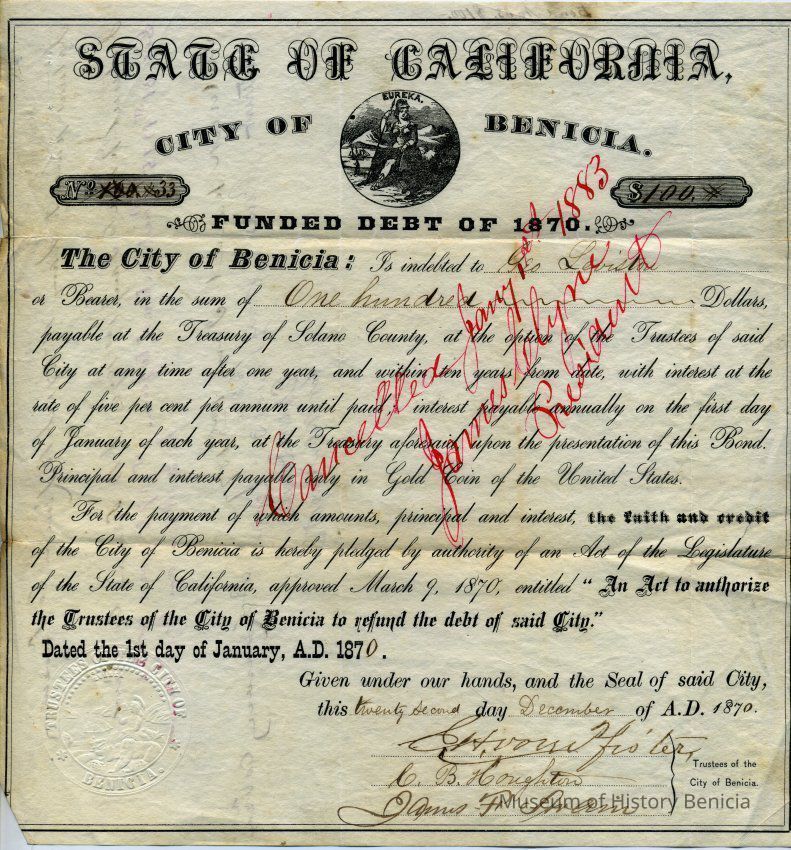 STATE OF CALIFORNIA,
CITY OF BENICIA.
EUREKA.
Nº 33
$100.
FUNDED DEBT OF 1870.
The City of Benicia: Is indebted to Geo
or Bearer, in the sum of One hundred Dollars,
payable at the Treasury of Solano County, at the option of the Trustees of said
City at any time after one year, and within ten years from date, with interest at the
rate of five per cent per annum until paid, interest payable annually on the first day
of January of each year, at the Treasury aforesaid, upon the presentation of this Bond.
Principal and interest payable only in Gold Coin of the United States.
For the payment of which amounts, principal and interest, the faith and credit
of the City of Benicia is hereby pledged by authority of an Act of the Legislature
of the State of California, approved March 9, 1870, entitled "An Act to authorize
the Trustees of the City of Benicia to refund the debt of said City."
Dated the 1st day of January, A.D. 1870.
Given under our hands, and the Seal of said City,
this twenty second day December of A.D. 1870.
Cancelled Jany 1st 1883
James
President
TRUSTEES OF THE CITY OF
BENICIA.
C. B. Houghton
James F.
Trustees of the
City of Benicia.
Museum of History Benicia